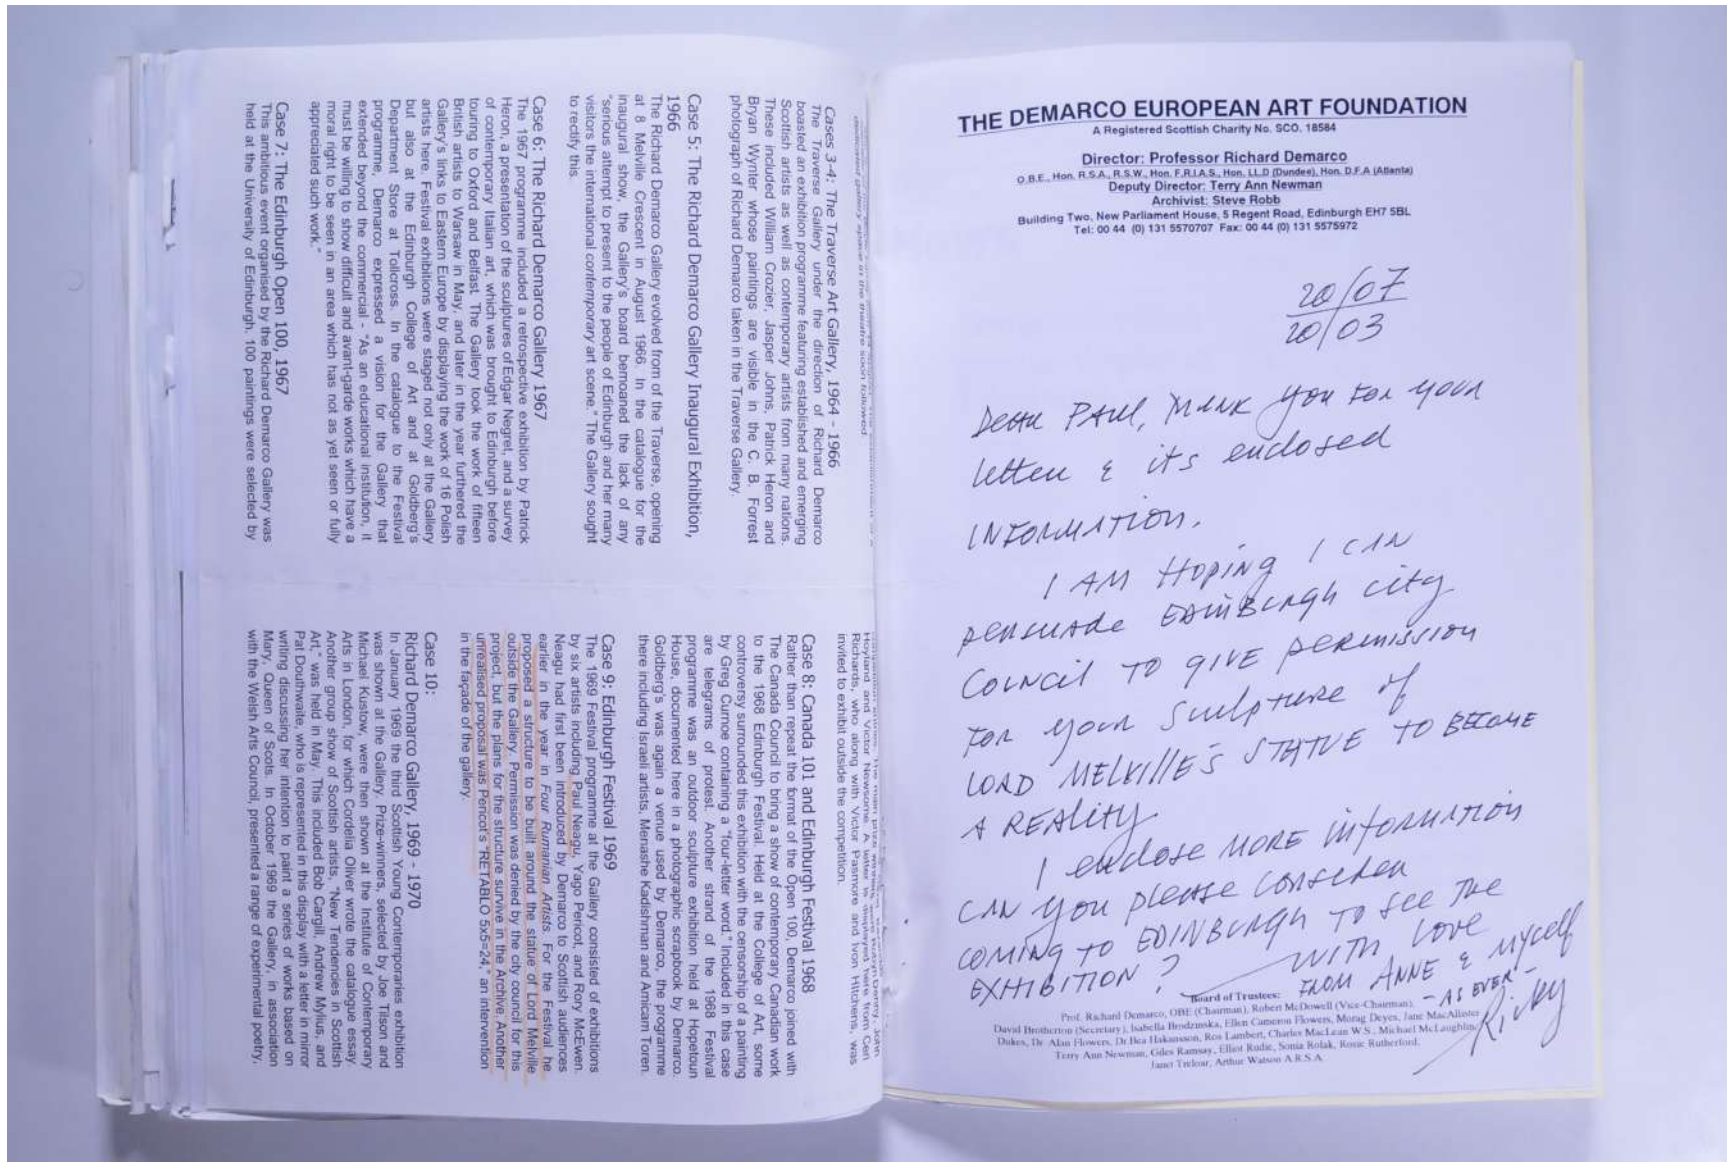 dedicated gallery space in the theatre soon followed.
Cases 3-4: The Traverse Art Gallery, 1964 - 1966
The Traverse Gallery under the direction of Richard Demarco
boasted an exhibition programme featuring established and emerging
Scottish artists as well as contemporary artists from many nations.
These included William Crozier, Jasper Johns, Patrick Heron and
Bryan Wynter whose paintings are visible in the C. B. Forrest
photograph of Richard Demarco taken in the Traverse Gallery.
Case 5: The Richard Demarco Gallery Inaugural Exhibition,
1966
The Richard Demarco Gallery evolved from of the Traverse, opening
at 8 Melville Crescent in August 1966. In the catalogue for the
inaugural show, the Gallery's board bemoaned the lack of any
"serious attempt to present to the people of Edinburgh and her many
visitors the international contemporary art scene." The Gallery sought
to rectify this.
Case 6: The Richard Demarco Gallery 1967
The 1967 programme included a retrospective exhibition by Patrick
Heron, a presentation of the sculptures of Edgar Negret, and a survey
of contemporary Italian art, which was brought to Edinburgh before
touring to Oxford and Belfast. The Gallery took the work of fifteen
British artists to Warsaw in May, and later in the year furthered the
Gallery's links to Eastern Europe by displaying the work of 16 Polish
artists here. Festival exhibitions were staged not only at the Gallery
but also at the Edinburgh College of Art and at Goldberg's
Department Store at Tollcross. In the catalogue to the Festival
programme, Demarco expressed a vision for the Gallery that
extended beyond the commercial - "As an educational institution, it
must be willing to show difficult and avant-garde works which have a
moral right to be seen in an area which has not as yet seen or fully
appreciated such work."
Case 7: The Edinburgh Open 100, 1967
This ambitious event organised by the Richard Demarco Gallery was
held at the University of Edinburgh. 100 paintings were selected by
Hoyland and Victor Newsome. A letter is displayed here from Ceri
Richards, who along with Victor Pasmore and Ivon Hitchens, was
invited to exhibit outside the competition.
Case 8: Canada 101 and Edinburgh Festival 1968
Rather than repeat the format of the Open 100, Demarco joined with
The Canada Council to bring a show of contemporary Canadian work
to the 1968 Edinburgh Festival. Held at the College of Art, some
controversy surrounded this exhibition with the censorship of a painting
by Greg Curnoe containing a "four-letter word." Included in this case
are telegrams of protest. Another strand of the 1968 Festival
programme was an outdoor sculpture exhibition held at Hopetoun
House, documented here in a photographic scrapbook by Demarco.
Goldberg's was again a venue used by Demarco, the programme
there including Israeli artists, Menashe Kadishman and Amicam Toren.
Case 9: Edinburgh Festival 1969
The 1969 Festival programme at the Gallery consisted of exhibitions
by six artists including Paul Neagu, Yago Pericot, and Rory McEwen.
Neagu had first been introduced by Demarco to Scottish audiences
earlier in the year in Four Rumanian Artists. For the Festival, he
proposed a structure to be built around the statue of Lord Melville
outside the Gallery. Permission was denied by the city council for this
project, but the plans for the structure survive in the Archive. Another
unrealised proposal was Pericot's "RETABLO 5x5=24," an intervention
in the façade of the gallery.
Case 10:
Richard Demarco Gallery, 1969 - 1970
In January 1969 the third Scottish Young Contemporaries exhibition
was shown at the Gallery. Prize-winners, selected by Joe Tilson and
Michael Kustow, were then shown at the Institute of Contemporary
Arts in London, for which Cordelia Oliver wrote the catalogue essay.
Another group show of Scottish artists, "New Tendencies in Scottish
Art," was held in May. This included Bob Cargill, Andrew Mylius, and
Pat Douthwaite, who is represented in this display with a letter in mirror
writing discussing her intention to paint a series of works based on
Mary, Queen of Scots. In October 1969 the Gallery, in association
with the Welsh Arts Council, presented a range of experimental poetry,
THE DEMARCO EUROPEAN ART FOUNDATION
A Registered Scottish Charity No. SCO. 18584
Director: Professor Richard Demarco
O.B.E., Hon. R.S.A., R.S.W., Hon. F.R.I.A.S., Hon. LL.D (Dundee), Hon. D.F.A (Atlanta)
Deputy Director: Terry Ann Newman
Archivist: Steve Robb
Building Two, New Parliament House, 5 Regent Road, Edinburgh EH7 5BL
Tel: 00 44 (0) 131 5570707 Fax: 00 44 (0) 131 5575972
20/07
20/03
Dear PAUL, THANK you FOR your
letter & its enclosed
INFORMATION.
I AM HOPING I CAN
persuade EDINBURGH city
COUNCIL TO GIVE PERMISSION
FOR your Sculpture of
LORD MELVILLE'S STATUE TO BECOME
A REALITY
I enclose MORE INFORMATION
CAN you please consider
COMING TO EDINBURGH TO SEE THE
EXHIBITION?
WITH LOVE
FROM ANNE & MYSELF
- AS EVER -
Ricky
Board of Trustees:
Prof. Richard Demarco, OBE (Chairman), Robert McDowell (Vice-Chairman),
David Brotherton (Secretary), Isabella Brodzinska, Ellen Cameron Flowers, Morag Deyes, Jane MacAllister
Dukes, Dr Alan Flowers, Dr Bea Hakansson, Ros Lambert, Charles MacLean W.S., Michael McLaughlin,
Terry Ann Newman, Giles Ramsay, Elliot Rudie, Sonia Rolak, Rosie Rutherford,
Janet Treloar, Arthur Watson A.R.S.A